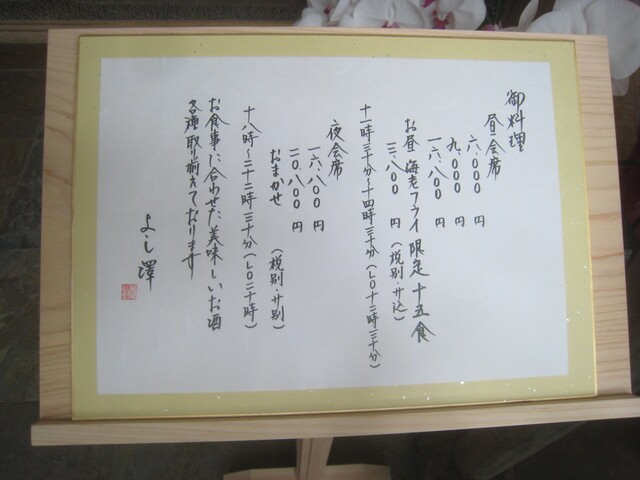 御料理
昼会席
六.000円
九.000円
一六.八00円
お昼 海老フライ 限定十五食
三.八00円(税別・サ込)
十一時三十分~十四時三十分(LO十三時三十分)
夜会席
一六.八00円
二0.八00円
おまかせ (税別・サ別)
十八時~二十二時三十分(LO二十時)
お食事に合わせた美味しいお酒
各種取り揃えております
よし澤